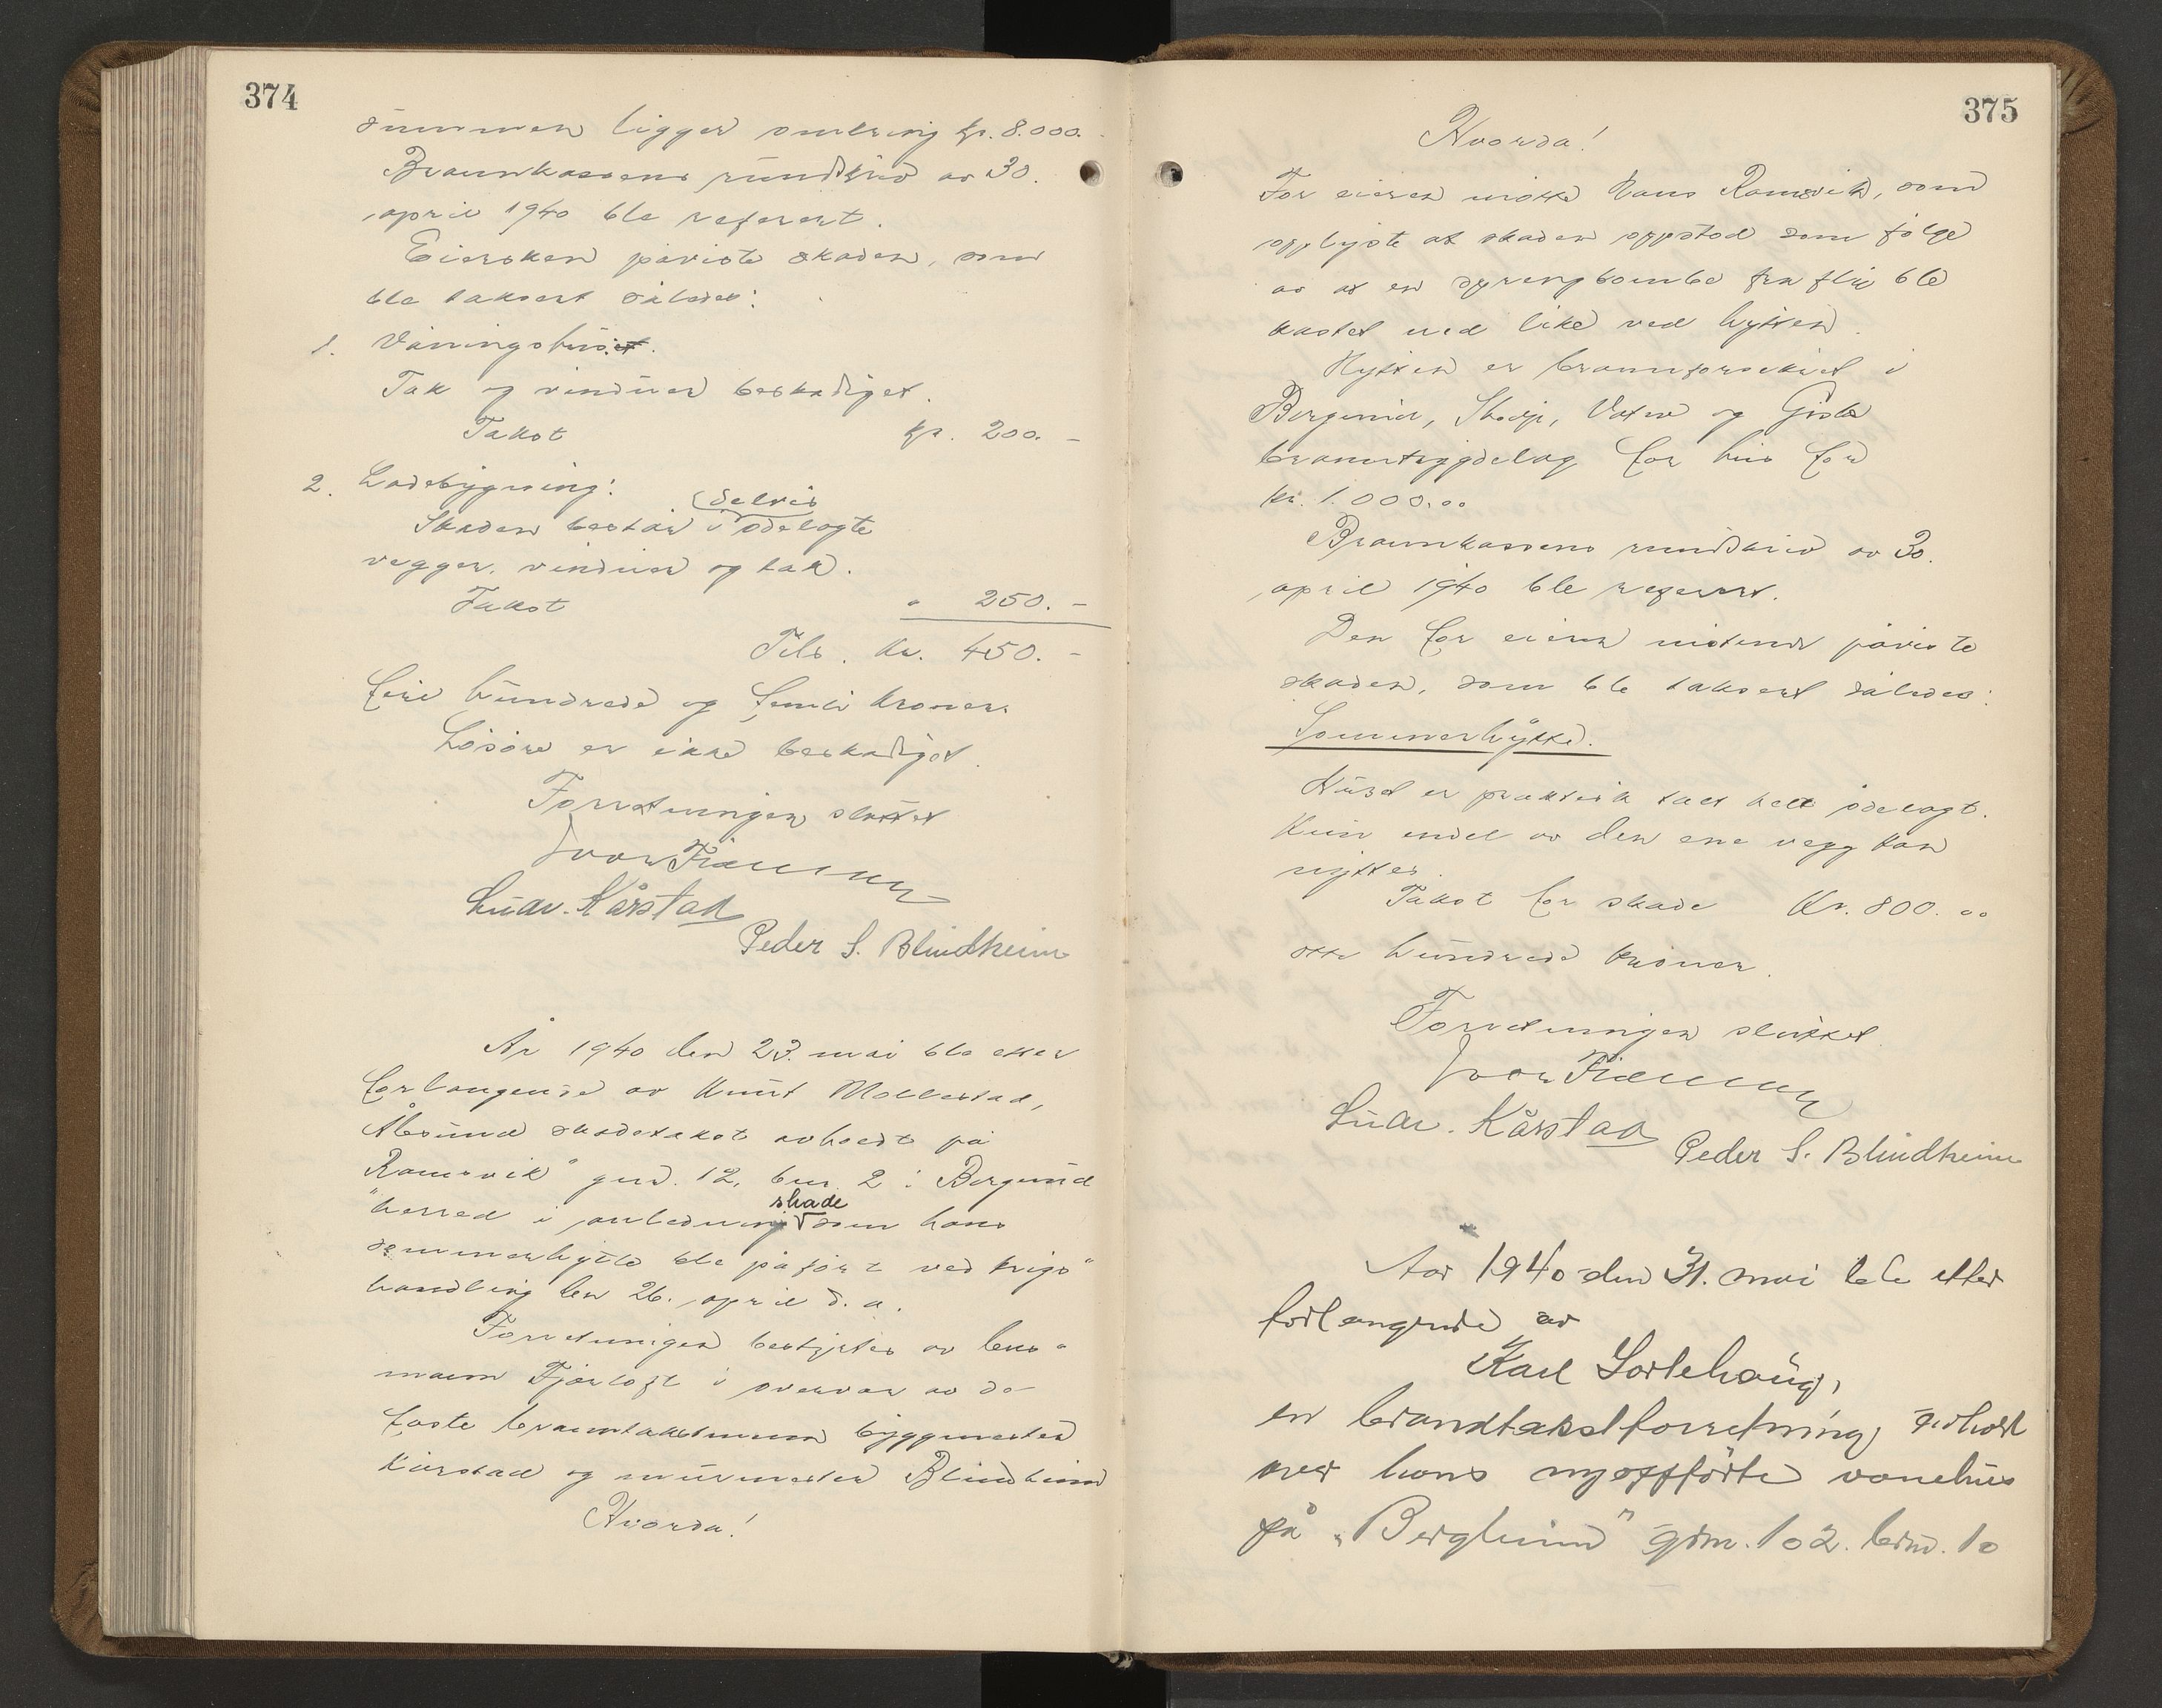 374
summen ligger omkring kr. 8.000.-
Brannkassens rundskriv av 30.
april 1940 ble referert.
Eiersken påviste skaden, som
ble taksert således:
1. Våningshuset.
Tak og vinduer beskadiget.
Takst kr. 200.-
2. Ladebygning:
delvis
Skaden består i ødelagte
vegger, vinduer og tak.
Takst " 250.-
Tils. kr. 450.-
fire hundrede og femti kroner.
Løsøre er ikke beskadiget.
Forretningen sluttet
Ludv. Kårstad
Peder S. Blindheim
År 1940 den 23. mai ble etter
forlangende av Knut Mollestad,
Ålesund skadetakst avholdt på
Ramsvik" gnr. 12, bnr. 2 i Borgund
skade
"herred i anledning som hans
sommerhytte ble påført ved krigs"
handling den 26. april d. a.
Forretningen bestyrtes av lens-
mann Fjørtoft i overvær av de
faste branntakstmenn byggmester
Kårstad og murmester Blindheim
Hvorda!
375
Hvorda!
For eieren møtte Hans Ramsvik, som
opplyste at skaden oppstod som følge
av at en sprengbombe fra fly ble
kastet ned like ved hytten.
Hytten er brannforsikret i
Borgund, Skodje, Vatne og Giske
branntrygdelag for hus for
kr. 1.000,00
Brannkassens rundskriv av 30.
april 1940 ble referert.
Den for eieren møtende påviste
skaden, som ble taksert således:
Sommerhytte.
Huset er praktisk talt helt ødelagt.
Kun endel av den ene vegg kan
nyttes.
Takst for skade Kr. 800.00
otte hundrede kroner.
Forretningen sluttet.
Ludv. Kårstad
Peder S. Blindheim
Aar 1940 den 31. mai ble etter
forlangende av
Karl Sortehaug,
en brandtakstforretning avholdt
over hans nyoppførte vonehus
på „Berglund" grnr. 102. brnr. 10